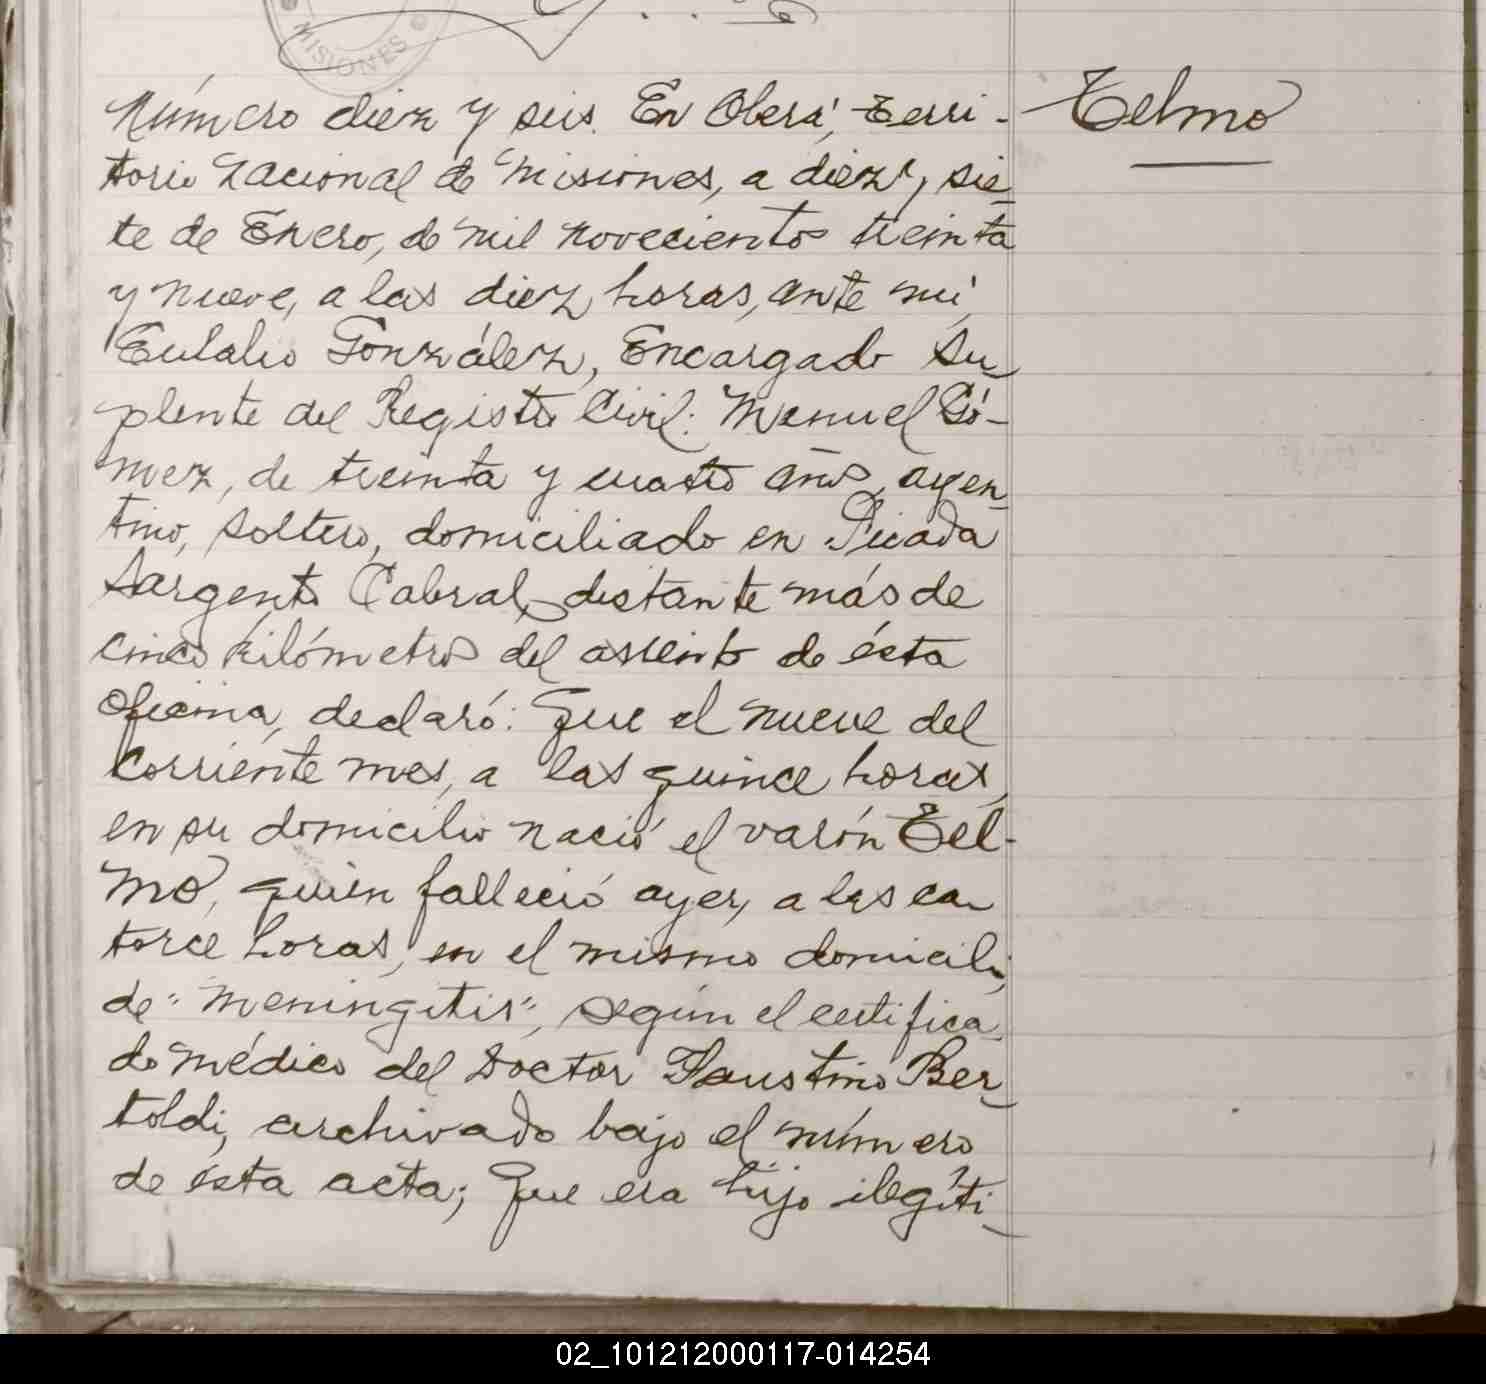 MISIONES
Número diez y seis. En Oberá, Terri-
torio Nacional de Misiones, a diez y sie-
te de Enero, de mil novecientos treinta
y nueve, a las diez horas, ante mí,
Eulalio González, Encargado Su-
plente del Registro Civil: Manuel Gó-
mez, de treinta y cuatro años, argen-
tino, soltero, domiciliado en Picada
Sargento Cabral, distante más de
cinco kilómetros del asiento de ésta
oficina, declaró: Que el nueve del
corriente mes, a las quince horas,
en su domicilio nació el varón Tel-
mo, quien falleció ayer, a las ca-
torce horas, en el mismo domicilio,
de "meningitis", según el certifica-
do médico del Doctor Faustino Ber-
toldi, archivado bajo el número
de ésta acta; Que era hijo ilegíti-
Telmo
02_101212000117-014254